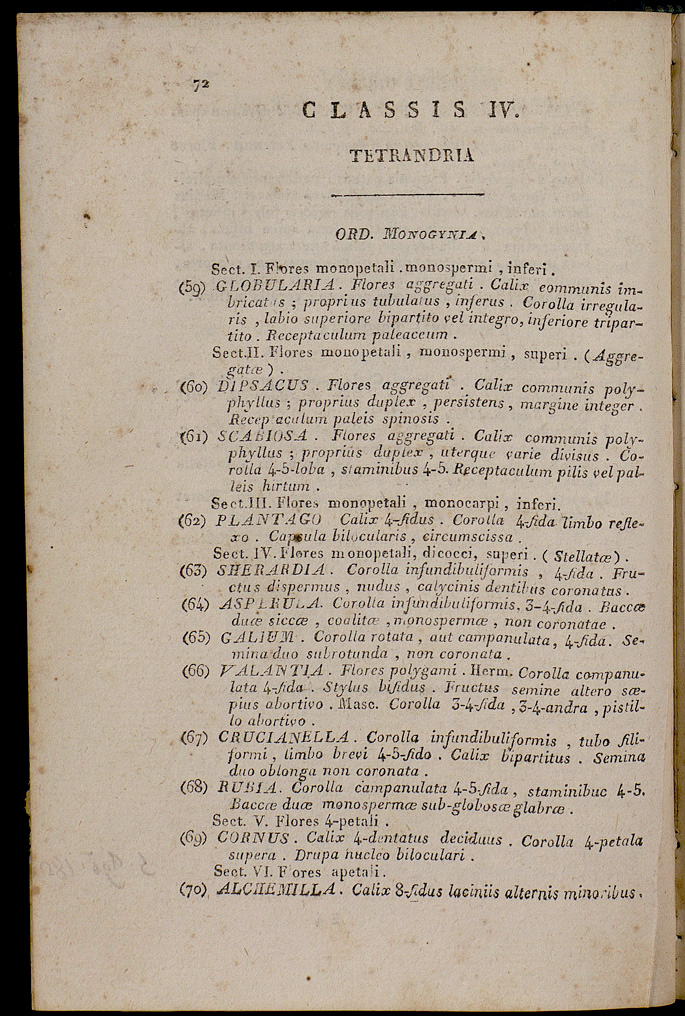 72
CLASSIS IV.
TETRANDRIA
ORD. MONOGYNIA.
Sect. I. Flores monopetali . monospermi , inferi .
(59) GLOBULARIA . Flores aggregati . Calix communis im-
bricatus ; proprius tubulatus , inferus . Corolla irregula-
ris , labio superiore bipartito vel integro, inferiore tripar-
tito . Receptaculum paleaceum .
Sect.II. Flores monopetali , monospermi , superi . ( Aggre-
gatæ ) .
(60) DIPSACUS . Flores aggregati . Calix communis poly-
phyllus ; proprius duplex , persistens , margine integer .
Receptaculum paleis spinosis .
(61) SCABIOSA . Flores aggregati . Calix communis poly-
phyllus ; proprius duplex , uterque varie divisus . Co-
rolla 4-5-loba , staminibus 4-5. Receptaculum pilis vel pal-
leis hirtum .
Sect.III. Flores monopetali , monocarpi , inferi.
(62) PLANTAGO Calix 4-fidus . Corolla 4-fida limbo refle-
xo . Capsula bilocularis , circumscissa .
Sect. IV. Flores monopetali, dicocci, superi . ( Stellatæ ) .
(63) SHERARDIA . Corolla infundibuliformis , 4-fida . Fru-
ctus dispermus , nudus , calycinis dentibus coronatus .
(64) ASPERULA. Corolla infundibuliformis, 3-4-fida . Baccæ
duæ siccæ , coalitæ , monospermæ , non coronatae .
(65) GALIUM . Corolla rotata , aut campanulata, 4-fida. Se-
mina duo subrotunda , non coronata .
(66) VALANTIA . Flores polygami . Herm. Corolla campanu-
lata 4-fida . Stylus bifidus . Fructus semine altero sæ-
pius abortivo . Masc. Corolla 3-4-fida , 3-4-andra , pistil-
lo abortivo .
(67) CRUCIANELLA . Corolla infundibuliformis , tubo fili-
formi , limbo brevi 4-5-fido . Calix bipartitus . Semina
duo oblonga non coronata .
(68) RUBIA. Corolla campanulata 4-5-fida , staminibuc 4-5.
Baccæ duæ monospermæ sub-globosæ glabræ .
Sect. V. Flores 4-petali .
(69) CORNUS . Calix 4-dentatus deciduus . Corolla 4-petala
supera . Drupa nucleo biloculari .
Sect. VI. Flores apetali .
(70) ALCHEMILLA . Calix 8-fidus laciniis alternis minoribus .